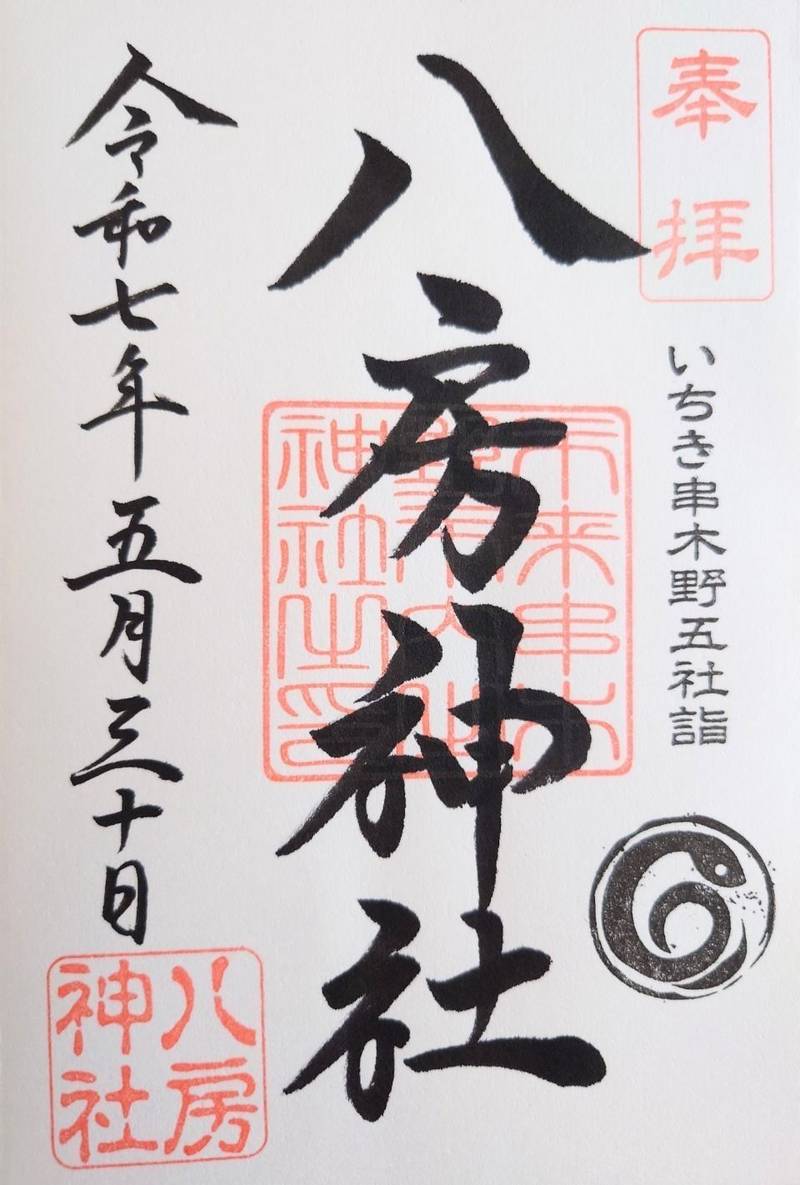 奉拝
いちき串木野五社詣
八房神社
令和七年五月三十日
八房
神社